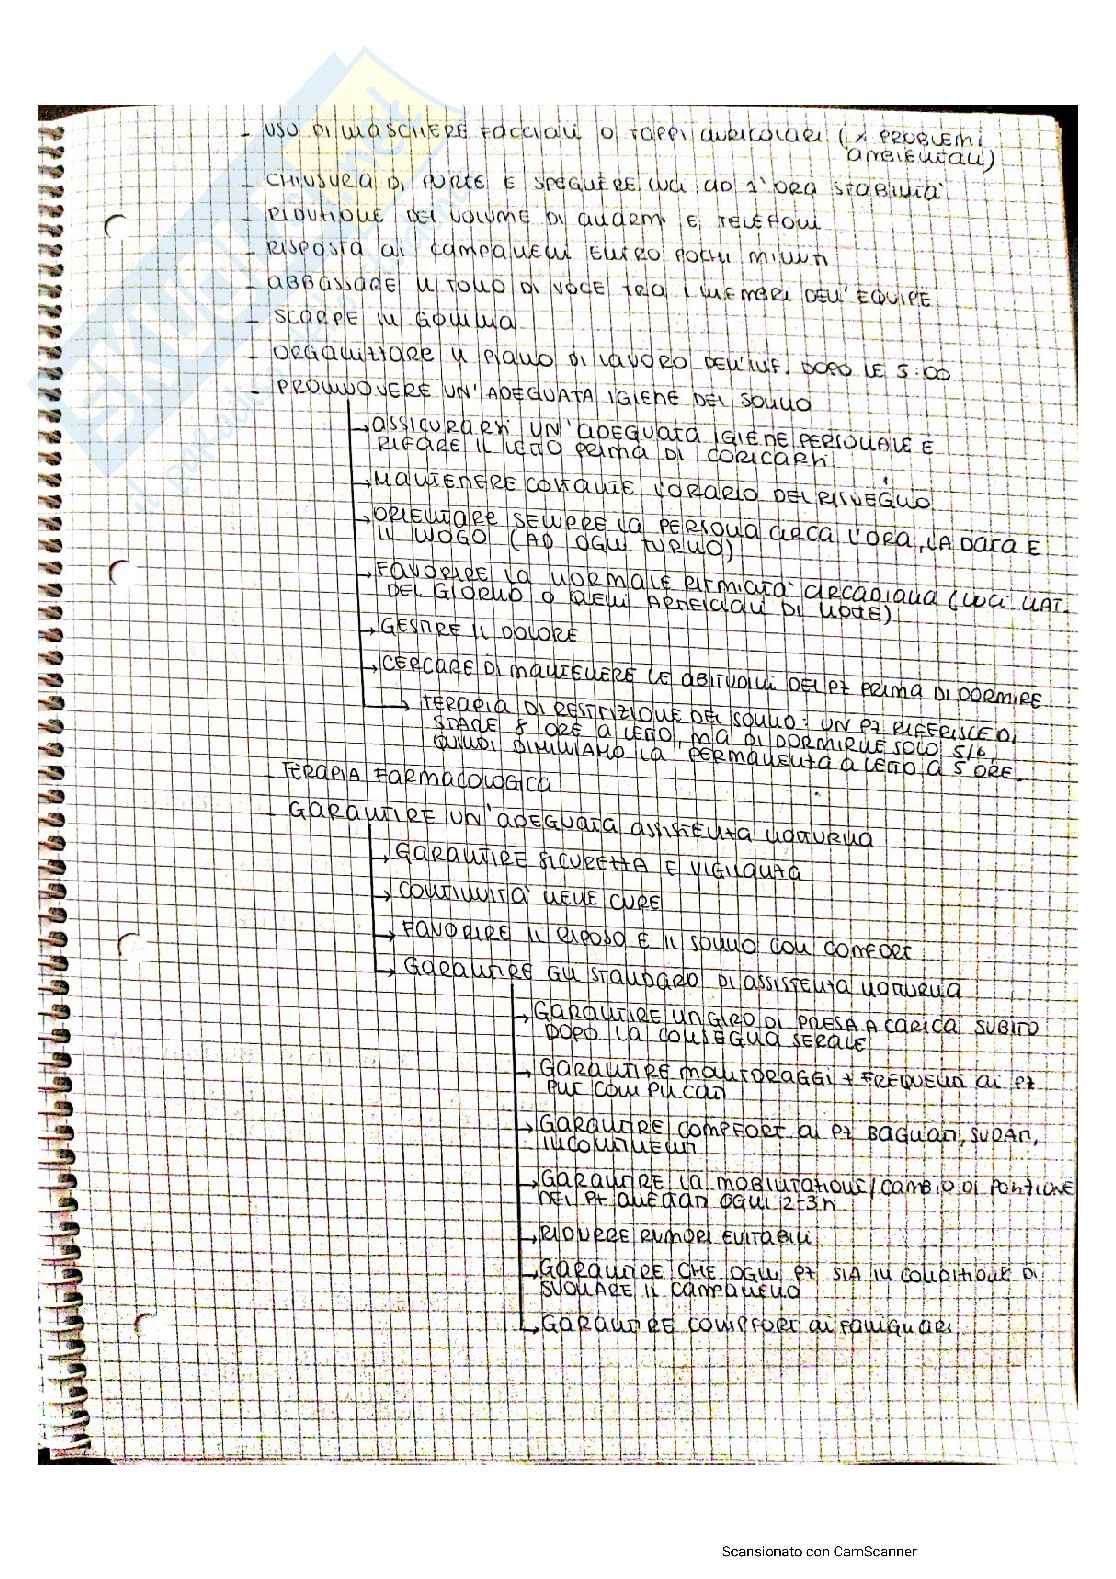 - USO DI MASCHERE FACCIALI O TAPPI AURICOLARI (X PROBLEMI
AMBIENTALI)
- CHIUSURA DI PORTE E SPEGNERE LUCI AD 1 ORA STABILITA
- RIDUZIONE DEL VOLUME DI ALLARMI E TELEFONI
- RISPOSTA AI CAMPANELLI ENTRO POCHI MINUTI
- ABBASSARE IL TONO DI VOCE TRA I MEMBRI DELL'EQUIPE
- SCARPE IN GOMMA
- ORGANIZZARE IL PIANO DI LAVORO DELL'INF. DOPO LE 5:00
- PROMUOVERE UN'ADEGUATA IGIENE DEL SONNO
→ ASSICURARSI UN'ADEGUATA IGIENE PERSONALE E
RIFARE IL LETTO PRIMA DI CORICARSI
→ MANTENERE COSTANTE L'ORARIO DEL RISVEGLIO
→ ORIENTARE SEMPRE LA PERSONA CIRCA L'ORA, LA DATA E
IL LUOGO (AD OGNI TURNO)
→ FAVORIRE LA NORMALE RITMICITÀ CIRCADIANA (LUCI NAT.
DEL GIORNO O QUELLI ARTIFICIALI DI NOTTE)
→ GESTIRE IL DOLORE
→ CERCARE DI MANTENERE LE ABITUDINI DEL PZ PRIMA DI DORMIRE
→ TERAPIA DI RESTRIZIONE DEL SONNO: UN PZ RIFERISCE DI
STARE 8 ORE A LETTO, MA DI DORMIRNE SOLO 5/6,
QUINDI DIMINUIAMO LA PERMANENZA A LETTO A 5 ORE
- TERAPIA FARMACOLOGICA
- GARANTIRE UN'ADEGUATA ASSISTENZA NOTTURNA
→ GARANTIRE SICUREZZA E VIGILANZA
→ CONTINUITÀ NELLE CURE
→ FAVORIRE IL RIPOSO E IL SONNO CON COMFORT
→ GARANTIRE GLI STANDARD DI ASSISTENZA NOTTURNA
→ GARANTIRE UN GIRO DI PRESA A CARICA SUBITO
DOPO LA CONSEGNA SERALE
→ GARANTIRE MONITORAGGI + FREQUENTI AI PZ
PIÙ COMPLICATI
→ GARANTIRE COMFORT AI PZ BAGNATI, SUDATI,
INCONTINENTI
→ GARANTIRE LA MOBILIZZAZIONE/CAMBIO DI POSIZIONE
DEL PZ ALLETTATI OGNI 2-3h
→ RIDURRE RUMORI EVITABILI
→ GARANTIRE CHE OGNI PZ SIA IN CONDIZIONE DI
SUONARE IL CAMPANELLO
→ GARANTIRE COMFORT AI FAMIGLIARI
Scansionato con CamScanner